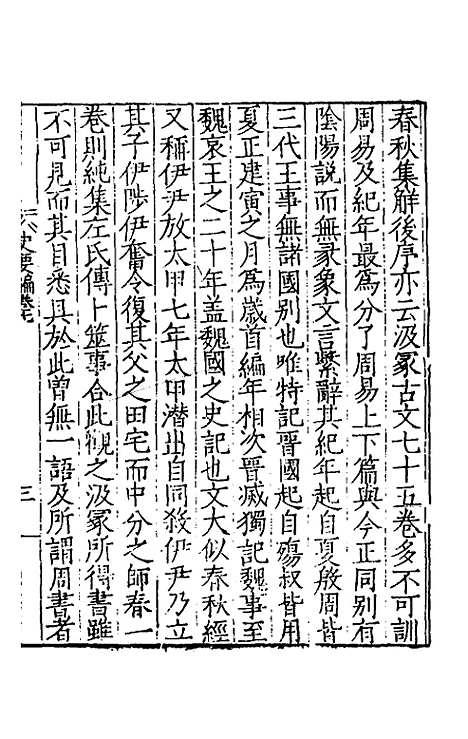 春秋集解後序亦云汲冢古文七十五卷多不可訓
周易及紀年最爲分了周易上下篇與今正同别有
陰陽説而無彖象文言繫辭其紀年起自夏殷周皆
三代王事無諸國别也唯特記晉國起自殤叔皆用
夏正建寅之月爲歲首編年相次晉滅獨記魏事至
魏哀王之二十年盖魏國之史記也文大似春秋經
又稱伊尹放太甲七年太甲潛出自同殺伊尹乃立
其子伊陟伊奮令復其父之田宅而中分之師春一
卷則純集左氏傳卜筮事合此觀之汲冢所得書雖
不可見而其目悉具於此曾無一語及所謂周書者
史要編卷七
三